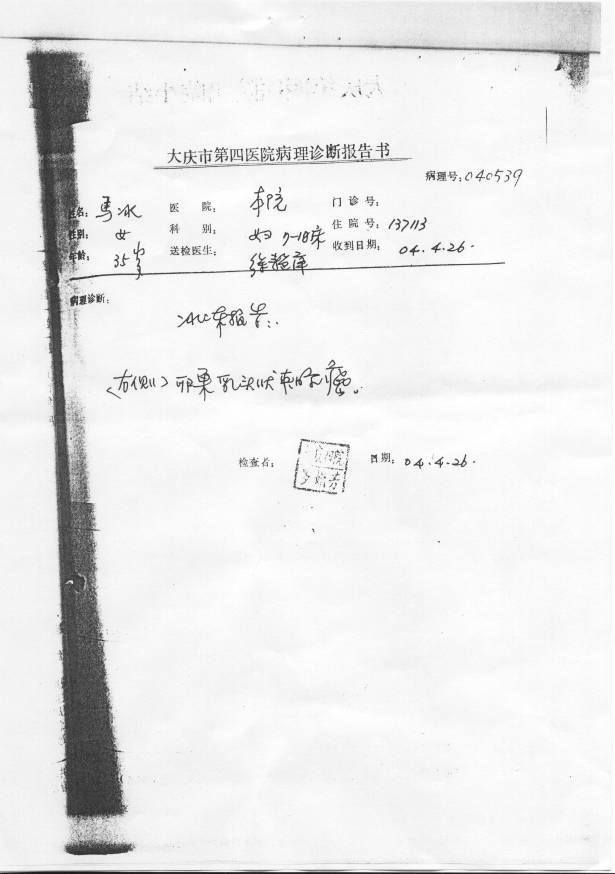 大庆市第四医院病理诊断报告书
病理号：040539
姓名：马冰 医院：本院 门诊号：
性别：女 科别：妇 7-18床 住院号：137113
年龄：35岁 送检医生： 收到日期：04.4.26.
病理诊断：
冰冻报告：
（右侧）卵巢乳头状 癌。
检查者： 日期：04.4.26.